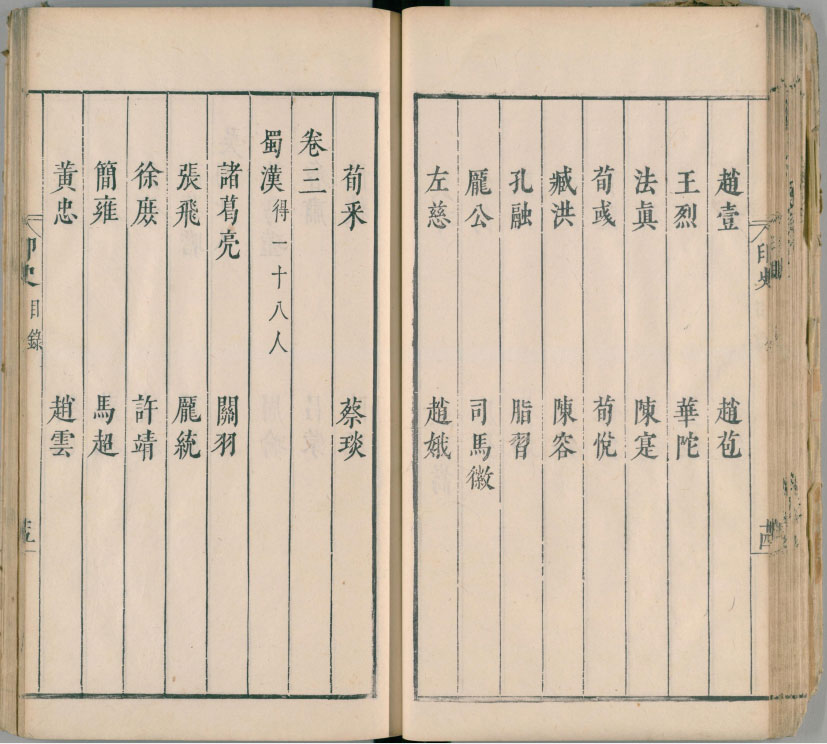 趙壹 趙苞
王烈 華陀
法眞 陳寔
荀彧 荀悅
臧洪 陳容
孔融 脂習
龐公 司馬徽
左慈 趙娥
荀采 蔡琰
卷三
蜀漢 得一十八人
諸葛亮 關羽
張飛 龐統
徐庶 許靖
簡雍 馬超
黃忠 趙雲
印史 目錄
印史